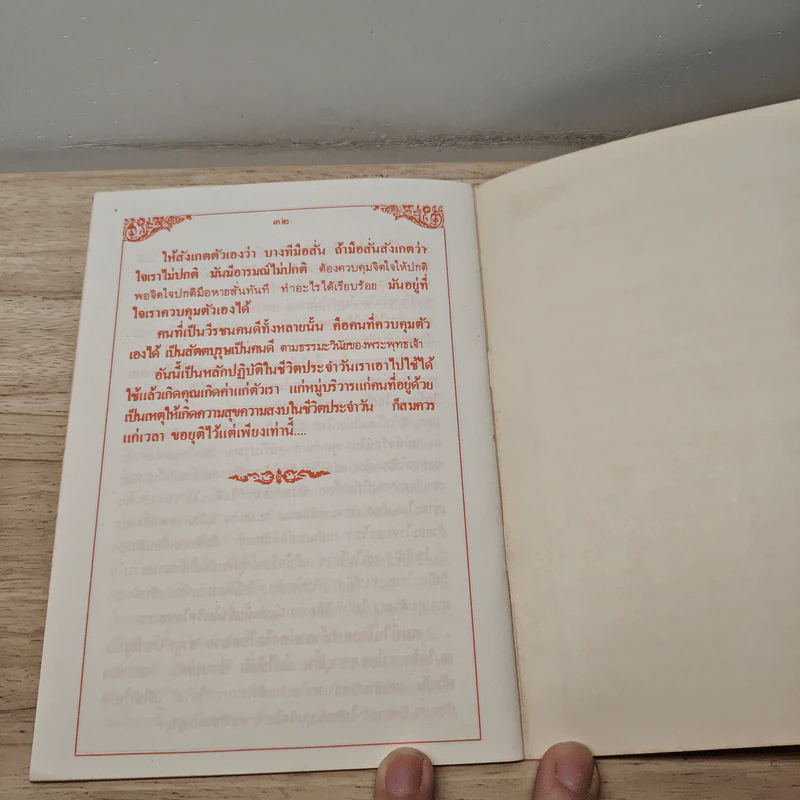 ๓๒
ให้สังเกตตัวเองว่า บางทีมือสั่น ถ้ามือสั่นสังเกตว่า
ใจเราไม่ปกติ มันมีอารมณ์ไม่ปกติ ต้องควบคุมจิตใจให้ปกติ
พอจิตใจปกติมือหายสั่นทันที ทำอะไรได้เรียบร้อย มันอยู่ที่
ใจเราควบคุมตัวเองได้
คนที่เป็นวีรชนคนดีทั้งหลายนั้น คือคนที่ควบคุมตัว
เองได้ เป็นสัตตบุรุษเป็นคนดี ตามธรรมะวินัยของพระพุทธเจ้า
อันนี้เป็นหลักปฏิบัติในชีวิตประจำวันเราเอาไปใช้ได้
ใช้แล้วเกิดคุณเกิดค่าแก่ตัวเรา แก่หมู่บริวารแก่คนที่อยู่ด้วย
เป็นเหตุให้เกิดความสุขความสงบในชีวิตประจำวัน ก็สมควร
แก่เวลา ขอยุติไว้แต่เพียงเท่านี้....